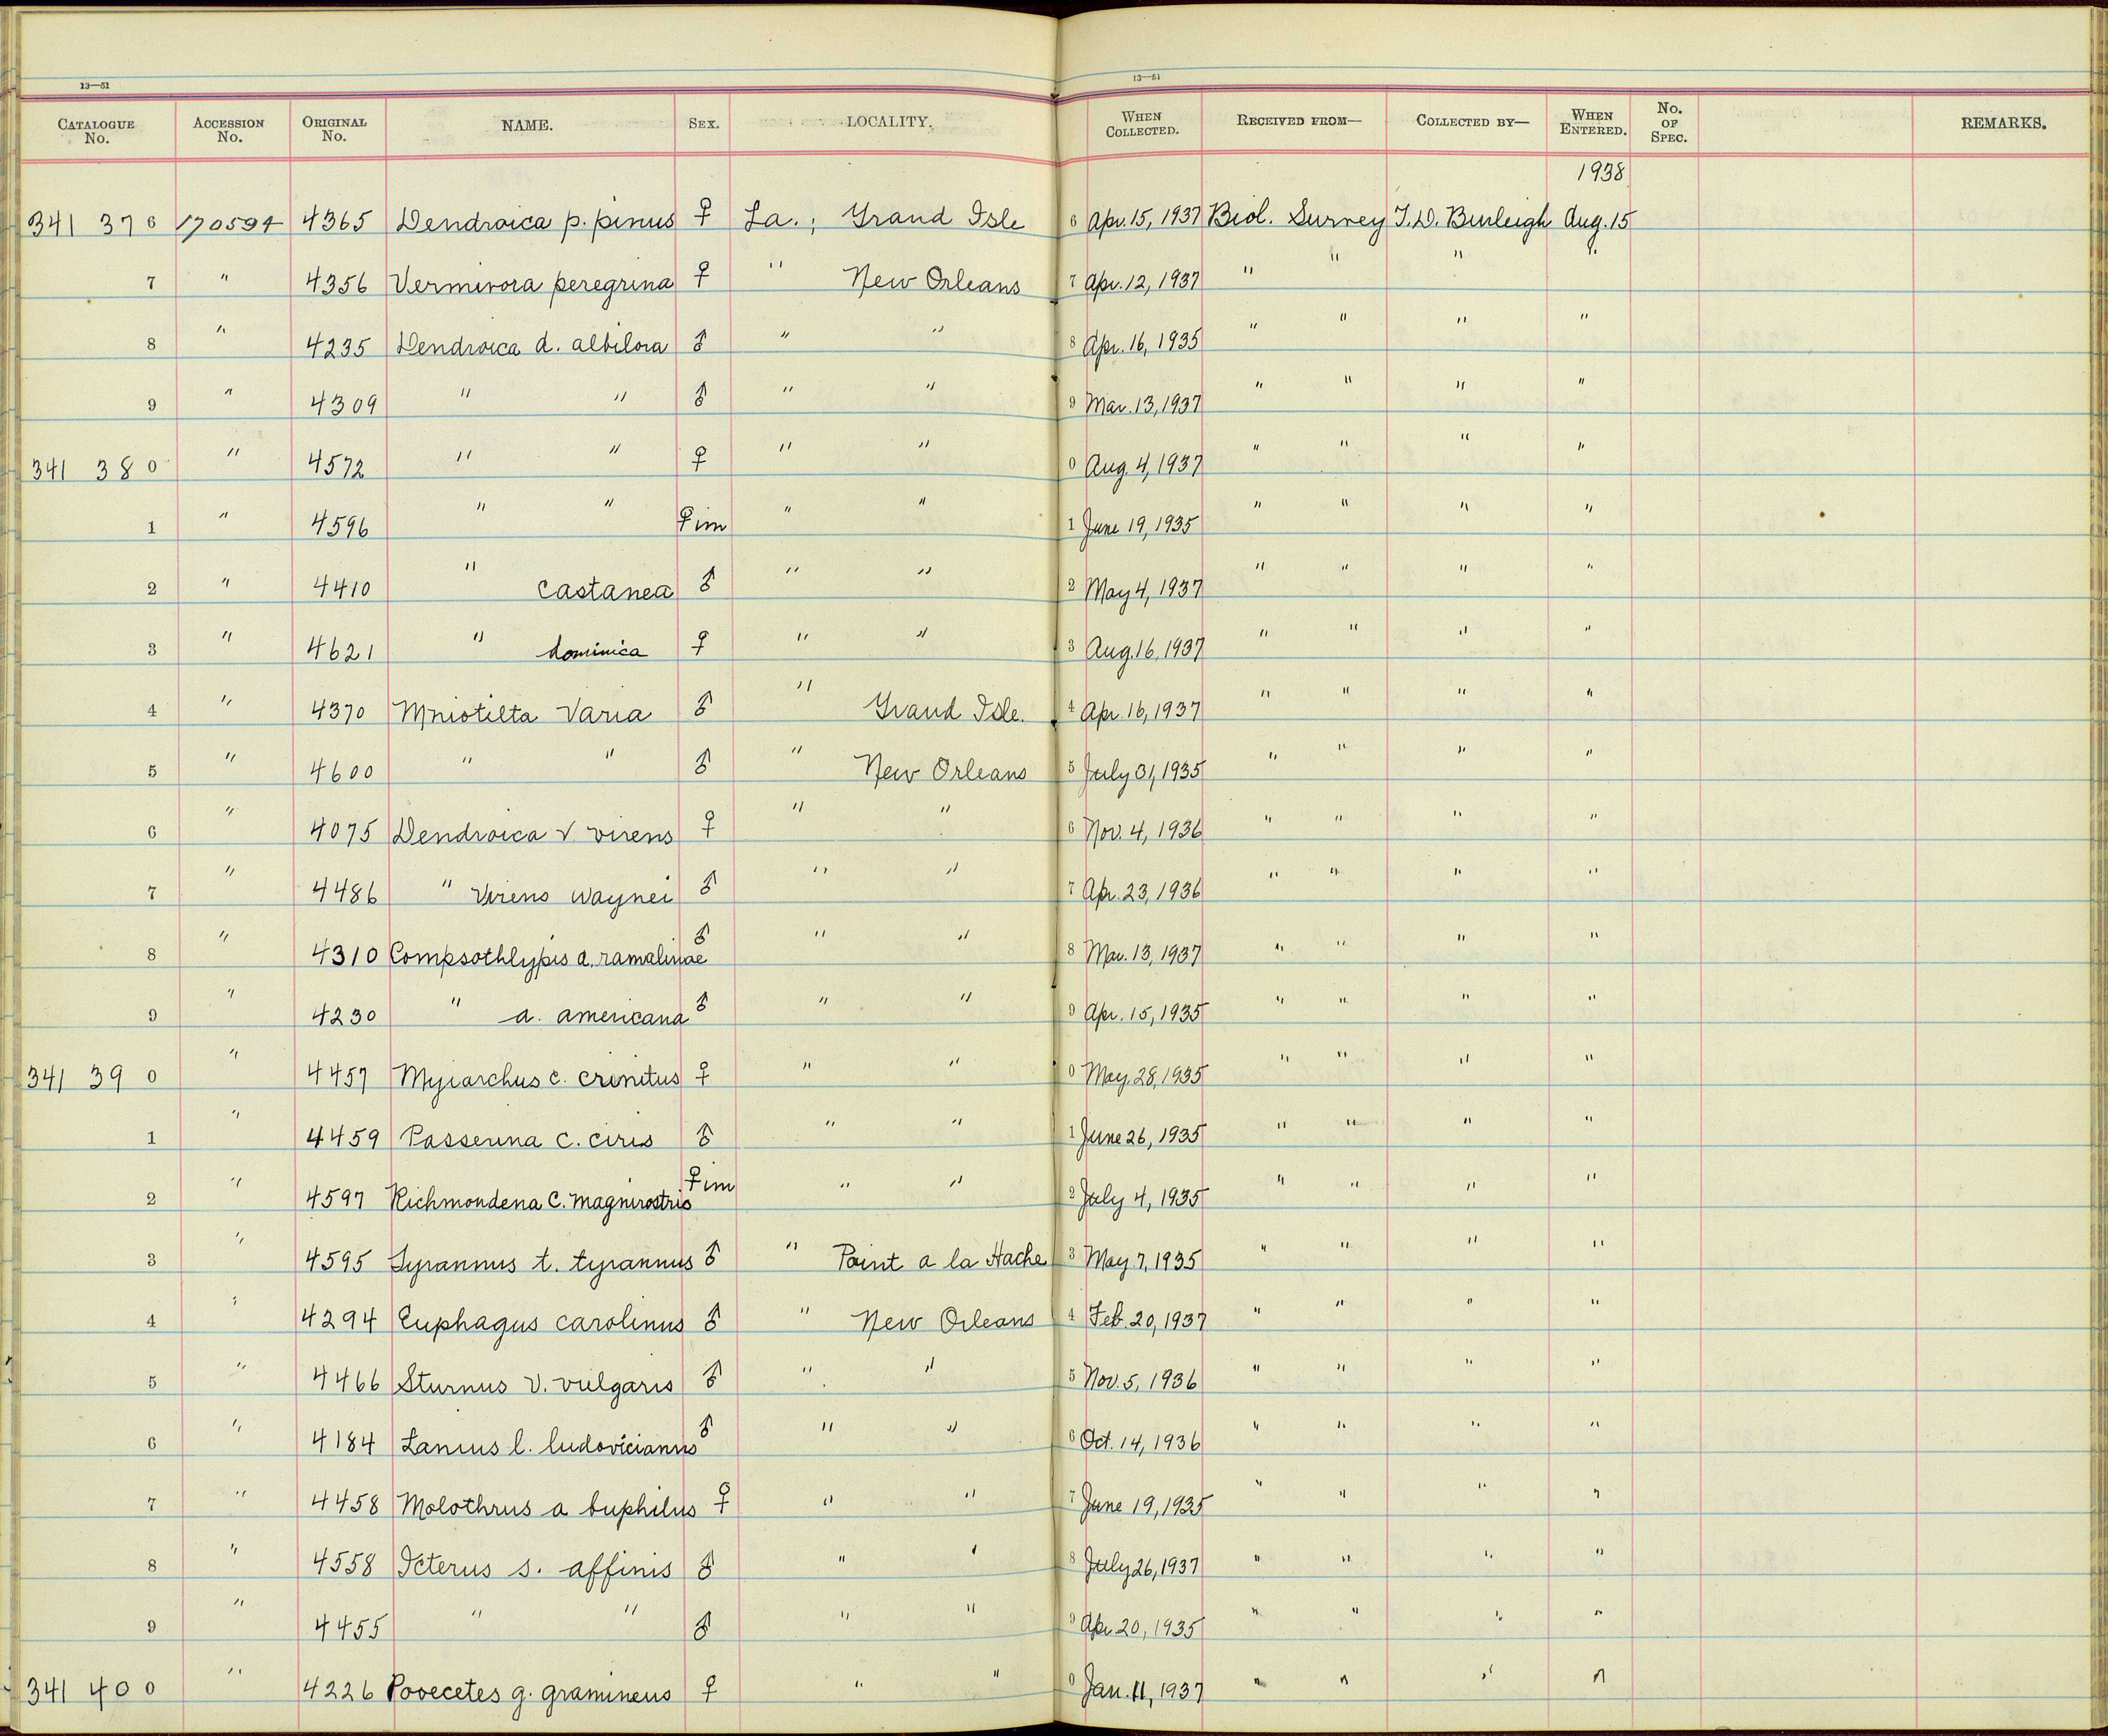 13—51 13—51
CATALOGUE No. ACCESSION No. ORIGINAL No. NAME. SEX. LOCALITY. WHEN COLLECTED. RECEIVED FROM— COLLECTED BY— WHEN ENTERED. No. OF SPEC. REMARKS.
1938
341 376 170594 4365 Dendroica p. pinus ♀ La.; Grand Isle 6 Apr. 15, 1937 Biol. Survey T.D. Burleigh Aug. 15
7 " 4356 Vermivora peregrina ♀ " New Orleans 7 Apr. 12, 1937 " " " "
8 " 4235 Dendroica d. albilora ♂ " " 8 Apr. 16, 1935 " " " "
9 " 4309 " " ♂ " " 9 Mar. 13, 1937 " " " "
341 380 " 4572 " " ♀ " " 0 Aug. 4, 1937 " " " "
1 " 4596 " " ♀ im " " 1 June 19, 1935 " " " "
2 " 4410 " castanea ♂ " " 2 May 4, 1937 " " " "
3 " 4621 " dominica ♀ " " 3 Aug. 16, 1937 " " " "
4 " 4370 Mniotilta varia ♂ " Grand Isle. 4 Apr. 16, 1937 " " " "
5 " 4600 " " ♂ " New Orleans 5 July 31, 1935 " " " "
6 " 4075 Dendroica v. virens ♀ " " 6 Nov. 4, 1936 " " " "
7 " 4486 " virens waynei ♂ " " 7 Apr. 23, 1936 " " " "
8 " 4310 Compsothlypis a. ramalinae ♂ " " 8 Mar. 13, 1937 " " " "
9 " 4230 " a. americana ♂ " " 9 Apr. 15, 1935 " " " "
341 390 " 4457 Myiarchus c. crinitus ♀ " " 0 May. 28, 1935 " " " "
1 " 4459 Passerina c. ciris ♂ " " 1 June 26, 1935 " " " "
2 " 4597 Richmondena c. magnirostris ♀ im " " 2 July 4, 1935 " " " "
3 " 4595 Tyrannus t. tyrannus ♂ " Point a la Hache 3 May. 7, 1935 " " " "
4 " 4294 Euphagus carolinus ♂ " New Orleans 4 Feb. 20, 1937 " " " "
5 " 4466 Sturnus v. vulgaris ♂ " " 5 Nov. 5, 1936 " " " "
6 " 4184 Lanius l. ludovicianus ♂ " " 6 Oct. 14, 1936 " " " "
7 " 4458 Molothrus a buphilus ♀ " " 7 June 19, 1935 " " " "
8 " 4558 Icterus s. affinis ♂ " " 8 July 26, 1937 " " " "
9 " 4455 " " ♂ " " 9 Apr. 20, 1935 " " " "
341 400 " 4226 Pooecetes g. gramineus ♀ " " 0 Jan. 11, 1937 " " " "